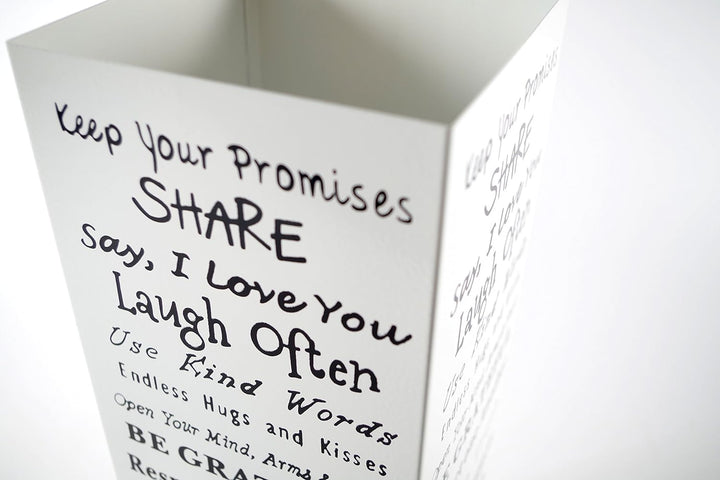 Keep Your Promises
SHARE
Say, I Love You
Laugh Often
Use Kind Words
Endless Hugs and Kisses
Open Your Mind, Arms
BE
Keep Your Promises
SHARE
Say, I Love
Laugh Often
Use Kind